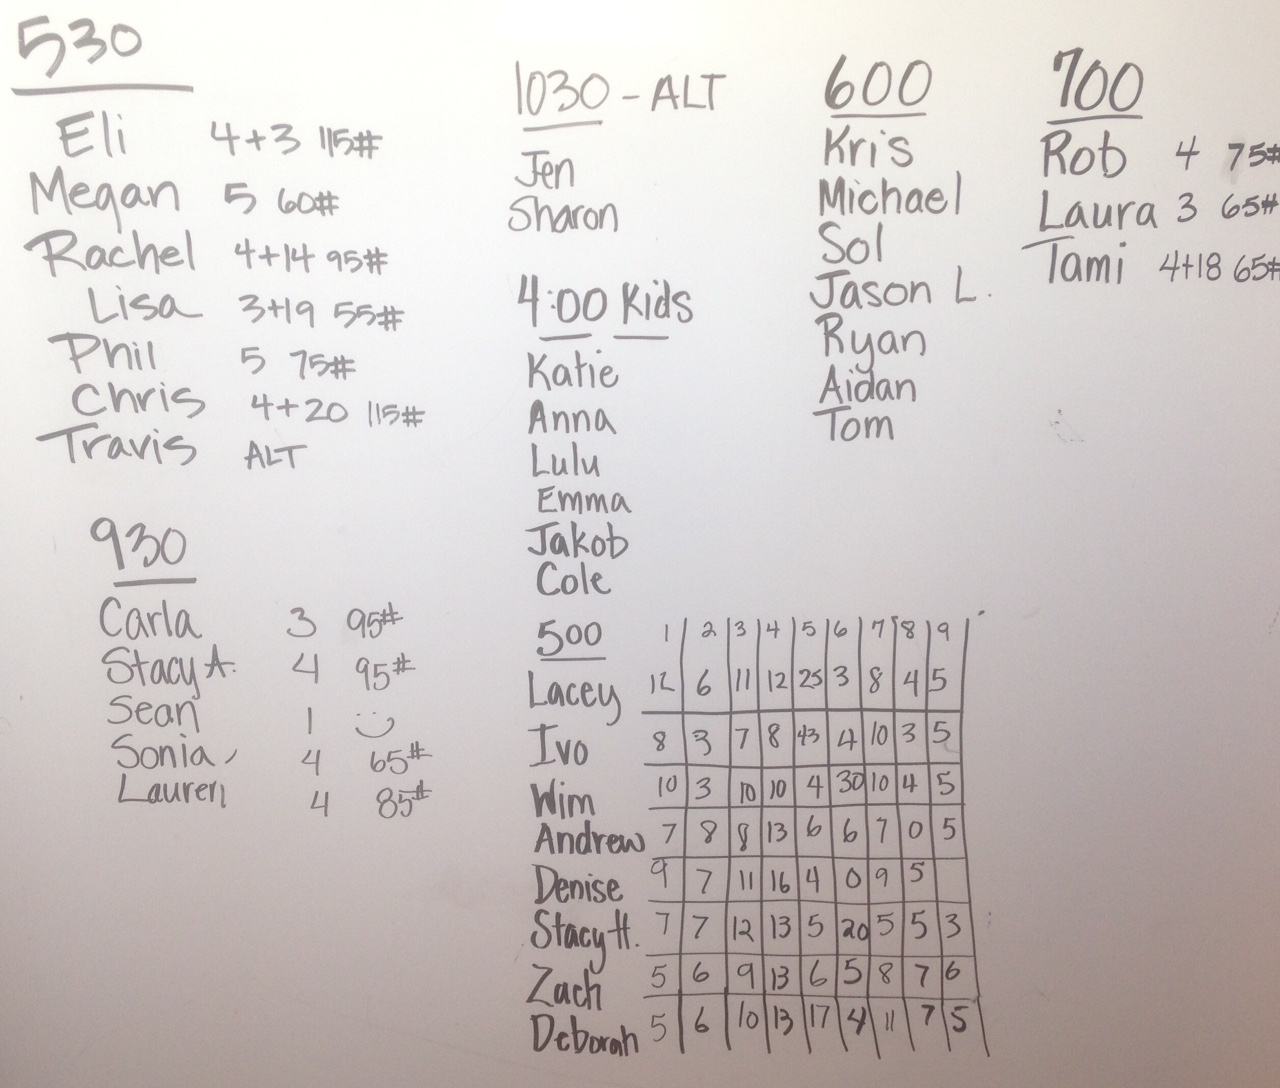 530
Eli 4+3 115#
Megan 5 60#
Rachel 4+14 95#
Lisa 3+19 55#
Phil 5 75#
Chris 4+20 115#
Travis ALT
930
Carla 3 95#
Stacy A. 4 95#
Sean 1
Sonia 4 65#
Lauren 4 85#
1030 - ALT
Jen
Sharon
4:00 Kids
Katie
Anna
Lulu
Emma
Jakob
Cole
500 1 2 3 4 5 6 7 8 9
Lacey 12 6 11 12 25 3 8 4 5
Ivo 8 3 7 8 43 4 10 3 5
Wim 10 3 10 10 4 30 10 4 5
Andrew 7 8 8 13 6 6 7 0 5
Denise 9 7 11 16 4 0 9 5
Stacy H. 7 7 12 13 5 20 5 5 3
Zach 5 6 9 13 6 5 8 7 6
Deborah 5 6 10 13 17 4 11 7 5
600
Kris
Michael
Sol
Jason L.
Ryan
Aidan
Tom
700
Rob 4 75#
Laura 3 65#
Tami 4+18 65#